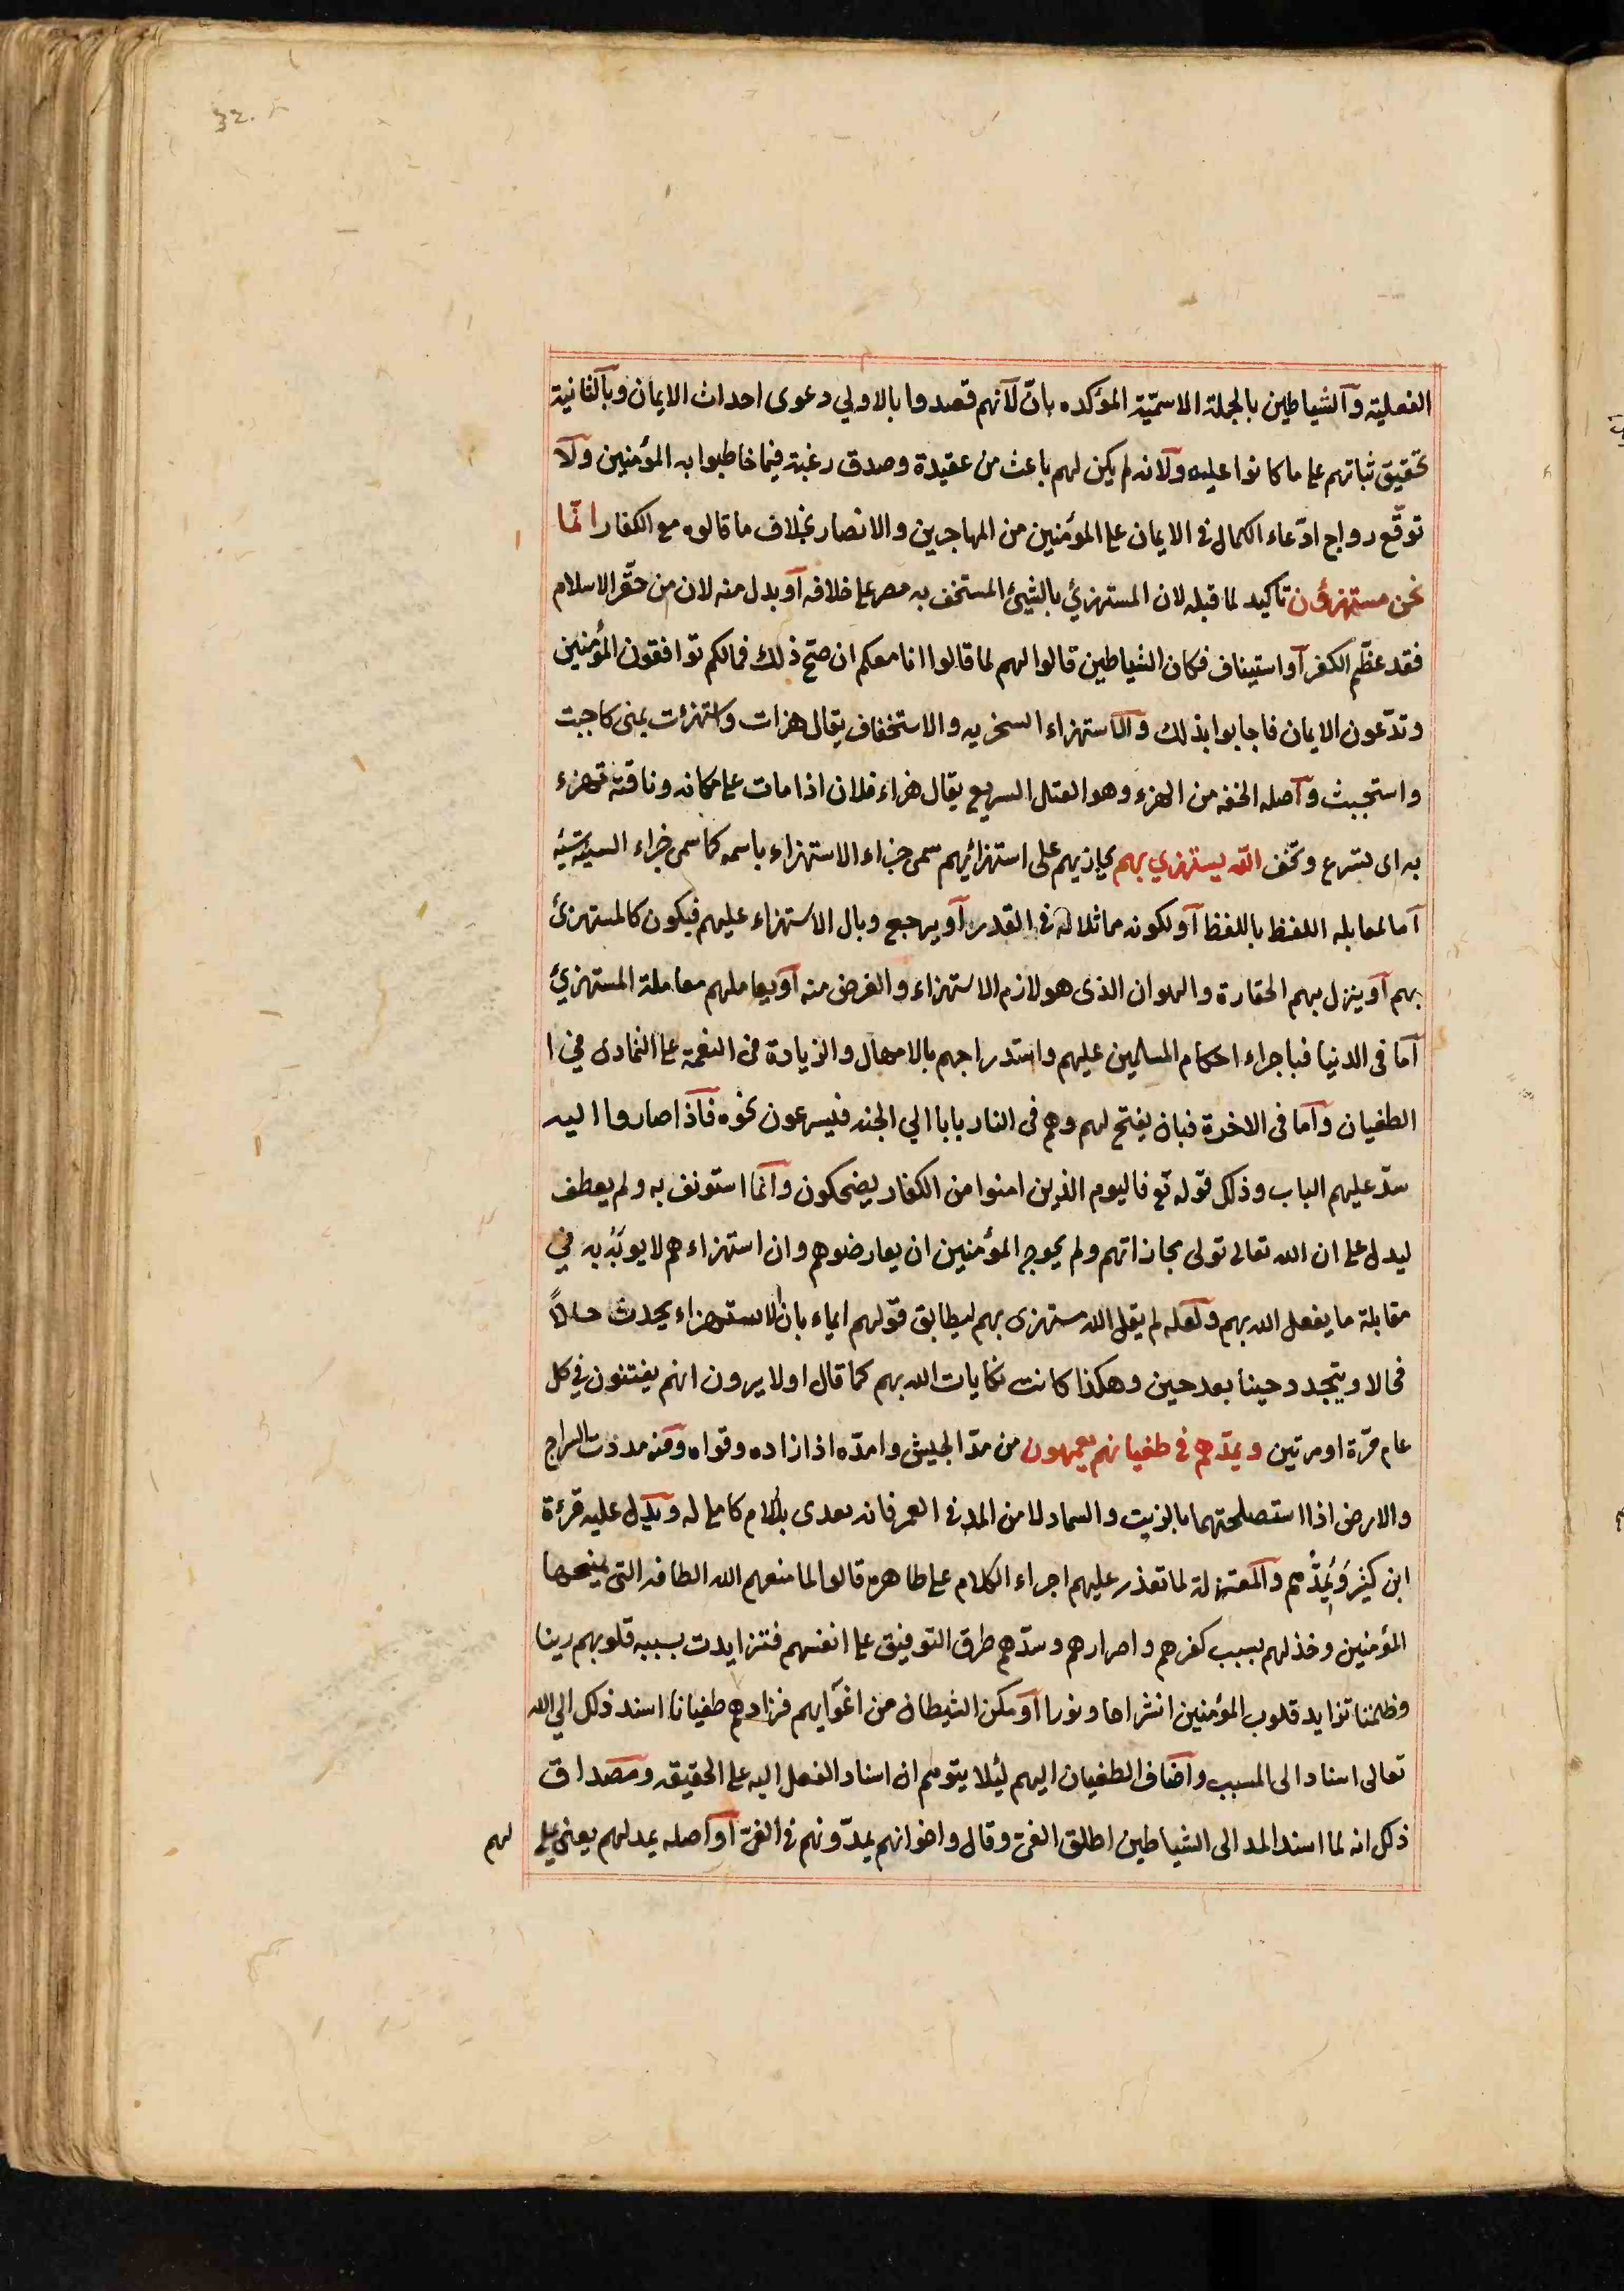 32.
الفعلية والشياطين بالجملة الاسميّة المؤكده بانّ لانهم قصدوا بالاولي دعوى احداث الايمان وبالثانية
تحقيق ثباتهم على ما كانوا عليه ولانه لم يكن لهم باعث من عقيدة وصدق رغبة فيما خاطبوا به المؤمنين ولا
توقّع رواج ادّعاء الكمال في الايمان على المؤمنين من المهاجرين والانصار بخلاف ما قالوه مع الكفار انّما
نحن مستهزؤن تاكيد لما قبله لان المستهزئ بالشيئ المستخف به مصر على خلافه او بدل منه لان من حقّر الاسلام
فقد عظّم الكفر او استيناف فكان الشياطين قالوا لهم لما قالوا انا معكم ان صحّ ذلك فمالكم توافقون المؤمنين
وتدّعون الايمان فاجابوا بذلك والاستهزاء السخريه والاستخفاف يقال هزات واستهزئت بمعنى كاجبت
واستجبت واصله الخفه من الهزء وهو القتل السريع يقال هزاء فلان اذا مات على مكانه وناقته تهزء
به اى تسرع وتخف الله يستهزي بهم يجازيهم على استهزائهم سمى جزاء الاستهزاء باسمه كما سمى جزاء السيئة سيئه
اما لمقابله اللفظ باللفظ او لكونه مماثلا له في القدر او يرجع وبال الاستهزاء عليهم فيكون كالمستهزئ
بهم او ينزل بهم الحقارة والهوان الذى هو لازم الاستهزاء والغرض منه او يعاملهم معاملة المستهزئ
اما فى الدنيا فباجراء احكام المسلمين عليهم واستدراجهم بالامهال والزيادة فى النعمة على التمادى في ا
الطغيان واما فى الاخرة فبان يفتح لهم وهم فى النار بابا الي الجنه فيسرعون نحوه فاذا صاروا اليه
سدّ عليهم الباب وذلك قوله تع فاليوم الذين امنوا من الكفار يضحكون وانما استونف به ولم يعطف
ليدل على ان الله تعالى تولى مجازاتهم ولم يحوج المؤمنين ان يعارضوهم وان استهزاءهم لا يوبه به في
مقابلة ما يفعل الله بهم ولعله لم يقل الله مستهزى بهم ليطابق قولهم ايماء بان الاستهزاء يحدث حالاً
فحالا ويتجدد حينا بعد حين وهكذا كانت نكايات الله بهم كما قال اولا يرون انهم يفتنون في كل
عام مرّة او مرتين ويمدّهم فى طغيانهم يعمهون من مدّ الجيش وامدّه اذا زاده وقواه ومنه مددت السراج
والارض اذا استصلحتهما بالزيت والسماد لا من المد في العمر فانه يعدى باللام كاملى له ويدل عليه قرئة
ابن كثير وَيُمِدُّهم والمعتزلة لما تعذر عليهم اجراء الكلام على ظاهره قالوا لما منعهم الله الطافه التى يمنحها
المؤمنين وخذلهم بسبب كفرهم واصرارهم وسدّهم طرق التوفيق على انفسهم فتزايدت بسببه قلوبهم رينا
وظلمنا تزايد قلوب المؤمنين انشراحا ونورا او مكن الشيطان من اغوايهم فزادهم طغيانا اسند ذلك الي الله
تعالى اسنادا لى المسبب واضاف الطغيان اليهم ليلا يتوهم ان اسناد الفعل اليه على الحقيقه ومصداق
ذلك انه لما اسند المد الى الشياطين اطلق الغى وقال واخوانهم يمدّونهم فى الغىّ او اصله يمد لهم يعنى يملي
لهم